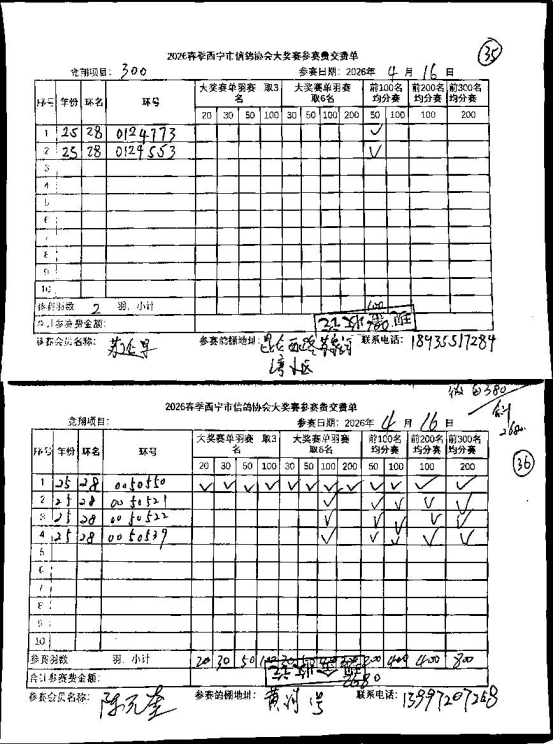 2026春季西宁市信鸽协会大奖赛参赛费交费单 35
竞翔项目: 300 参赛日期: 2026年 4 月 16 日
序号 年份 环名 环号 大奖赛单羽赛 取3名 大奖赛单羽赛 取6名 前100名均分赛 前200名均分赛 前300名均分赛
20 30 50 100 30 50 100 200 50 100 100 200
1 25 28 0124773 ✓
2 25 28 0124553 ✓
3
4
5
6
7
8
9
10
参赛羽数 2 羽, 小计 100
合计参赛费金额:
参赛会员名称: 参赛鸽棚地址: 联系电话: 18435517284
2026春季西宁市信鸽协会大奖赛参赛费交费单
竞翔项目: 参赛日期: 2026年 4 月 16 日
36
序号 年份 环名 环号 大奖赛单羽赛 取3名 大奖赛单羽赛 取6名 前100名均分赛 前200名均分赛 前300名均分赛
20 30 50 100 30 50 100 200 50 100 100 200
1 25 28 0050550 ✓ ✓ ✓ ✓ ✓ ✓ ✓ ✓ ✓ ✓ ✓ ✓
2 25 28 0050521 ✓ ✓ ✓ ✓ ✓
3 25 28 0050522 ✓ ✓ ✓ ✓ ✓
4 25 28 0050539 ✓ ✓ ✓ ✓ ✓
5
6
7
8
9
10
参赛羽数 羽, 小计 20 30 50 100 30 50 400 200 200 400 400 800
合计参赛费金额:
参赛会员名称: 陈元奎 参赛鸽棚地址: 联系电话: 13997207268